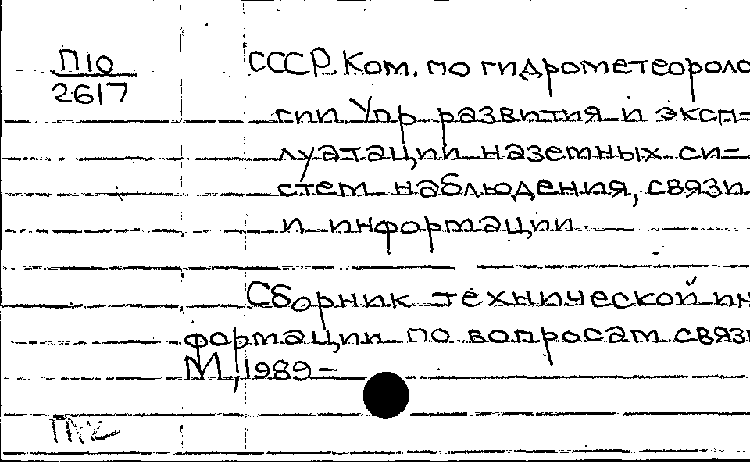 П10
2617
СССР. Ком. по гидрометеороло
гии Упр. развития и эксп-
луатации наземных си-
стем наблюдения, связи
и информации.
Сборник технической ин
формации по вопросам связи
М, 1989 –